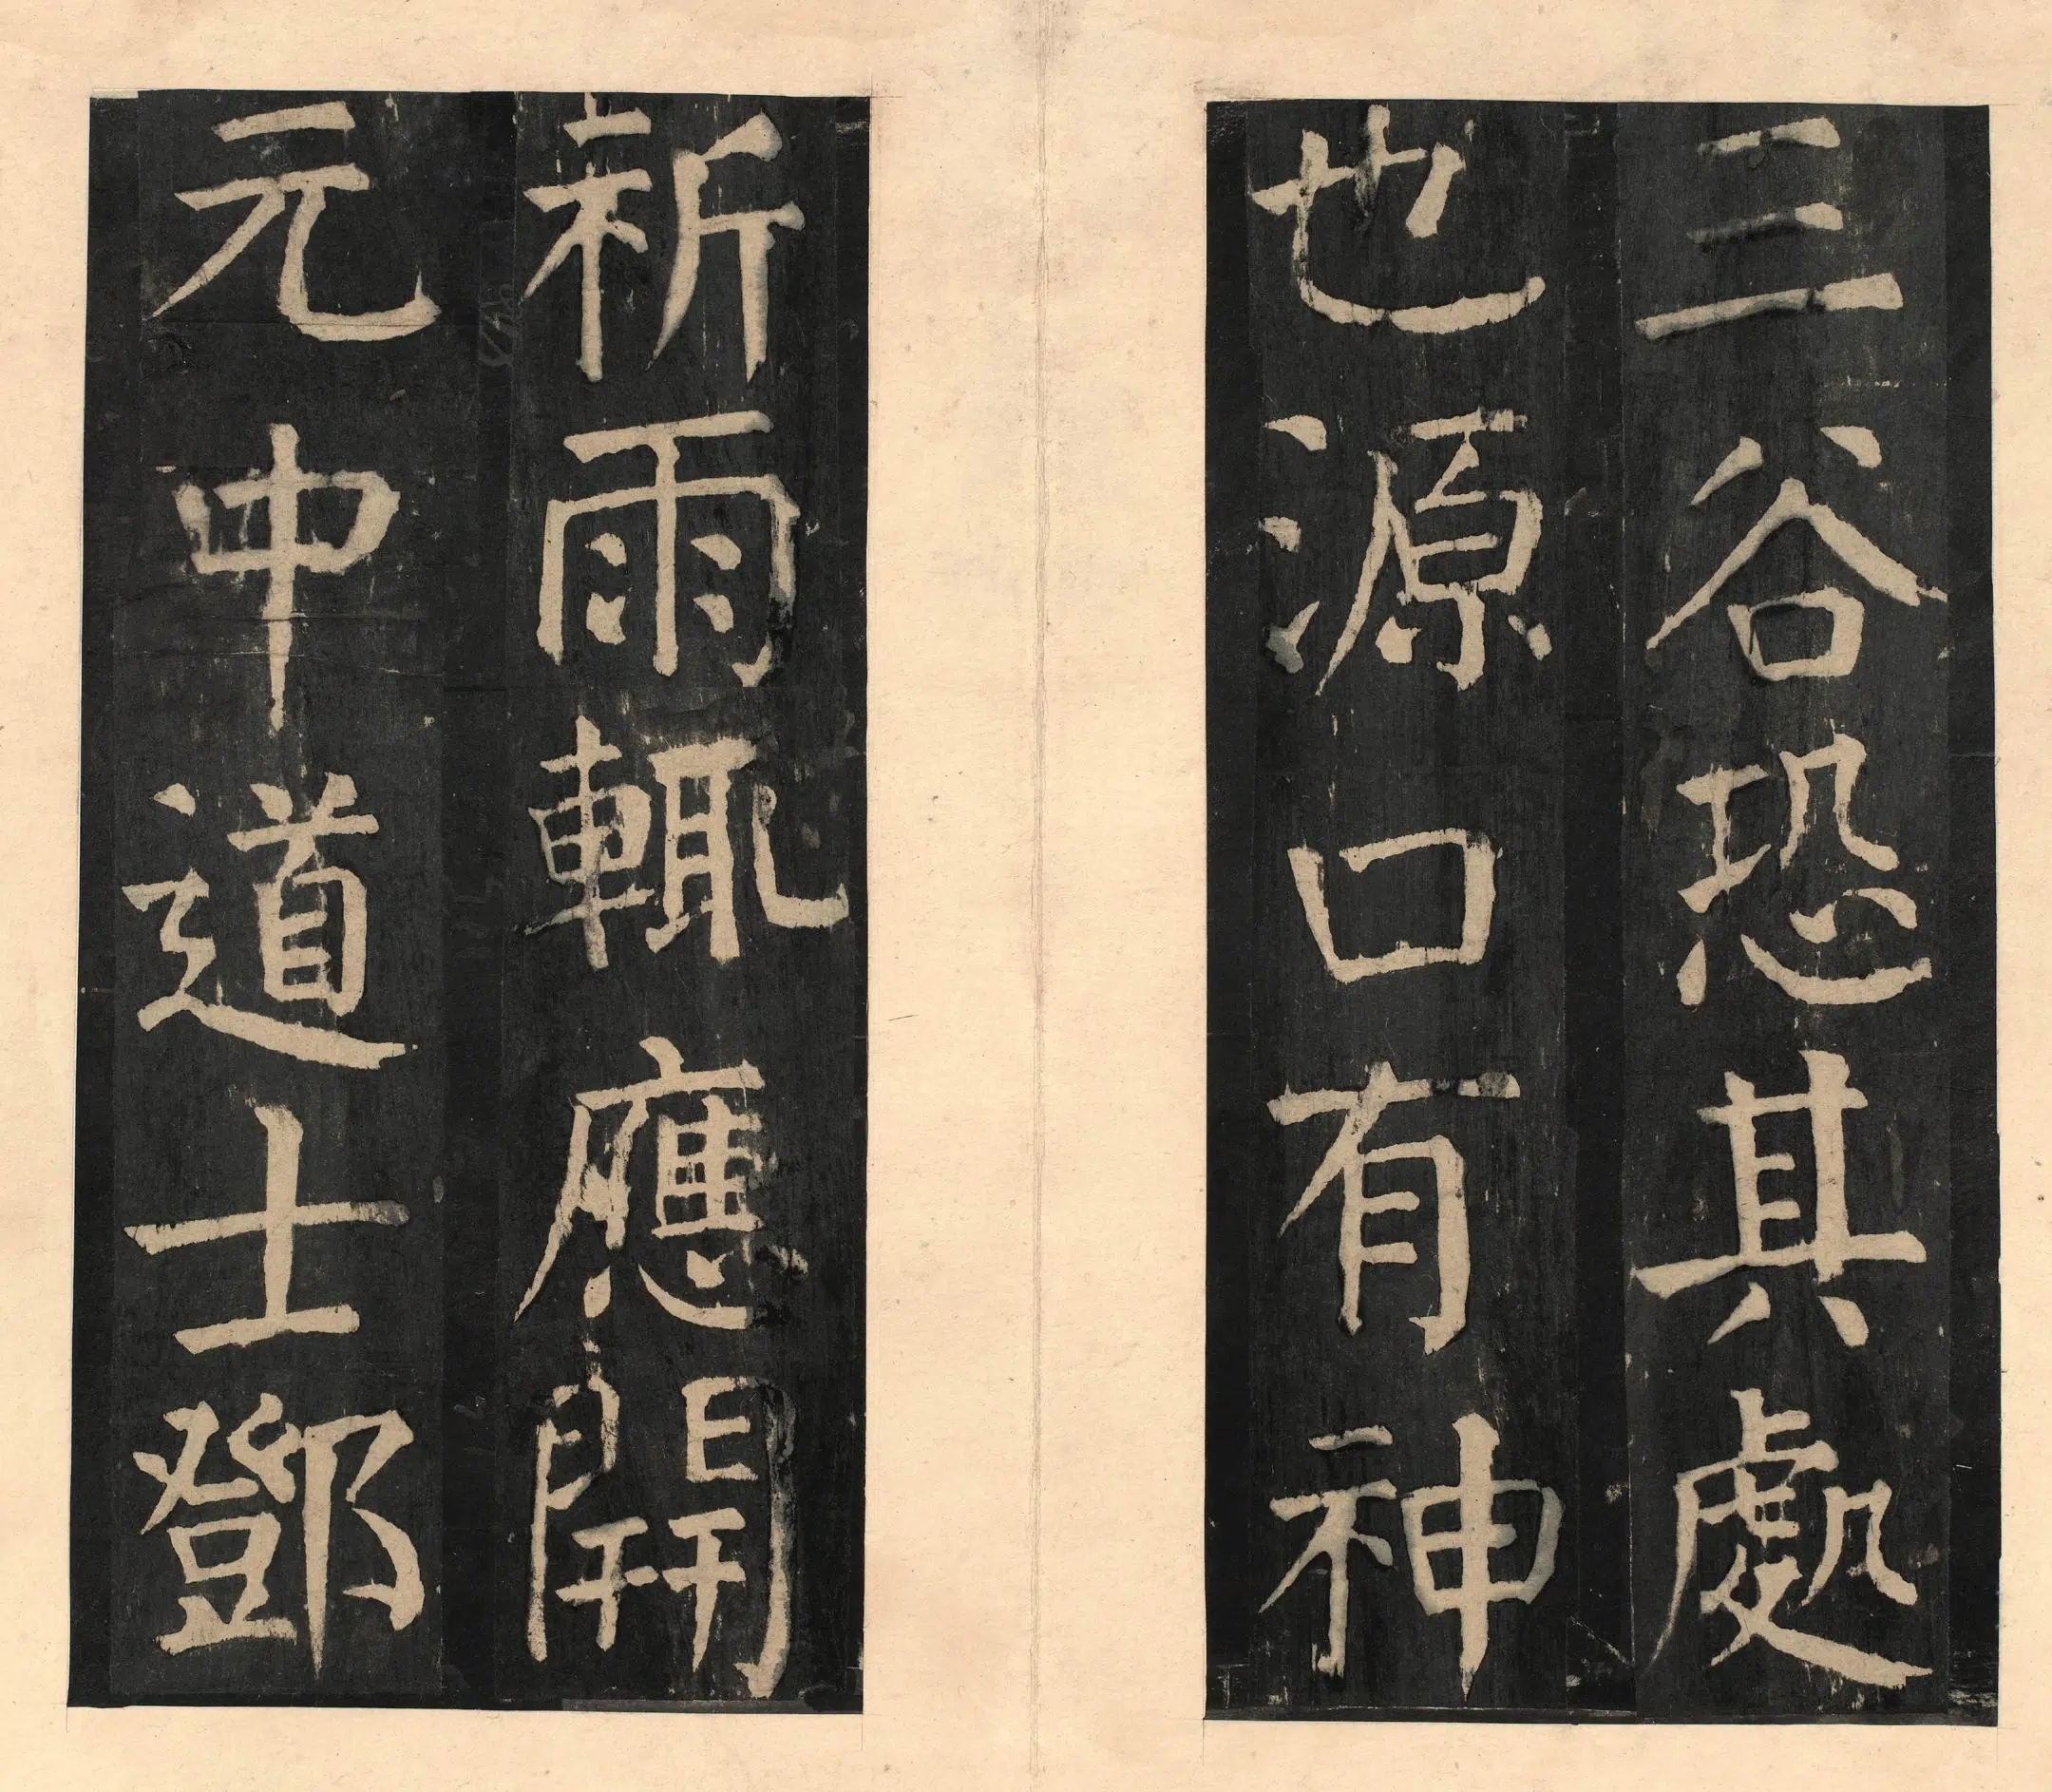 三谷恐其處
也源口有神
祈雨輒應開
元中道士鄧